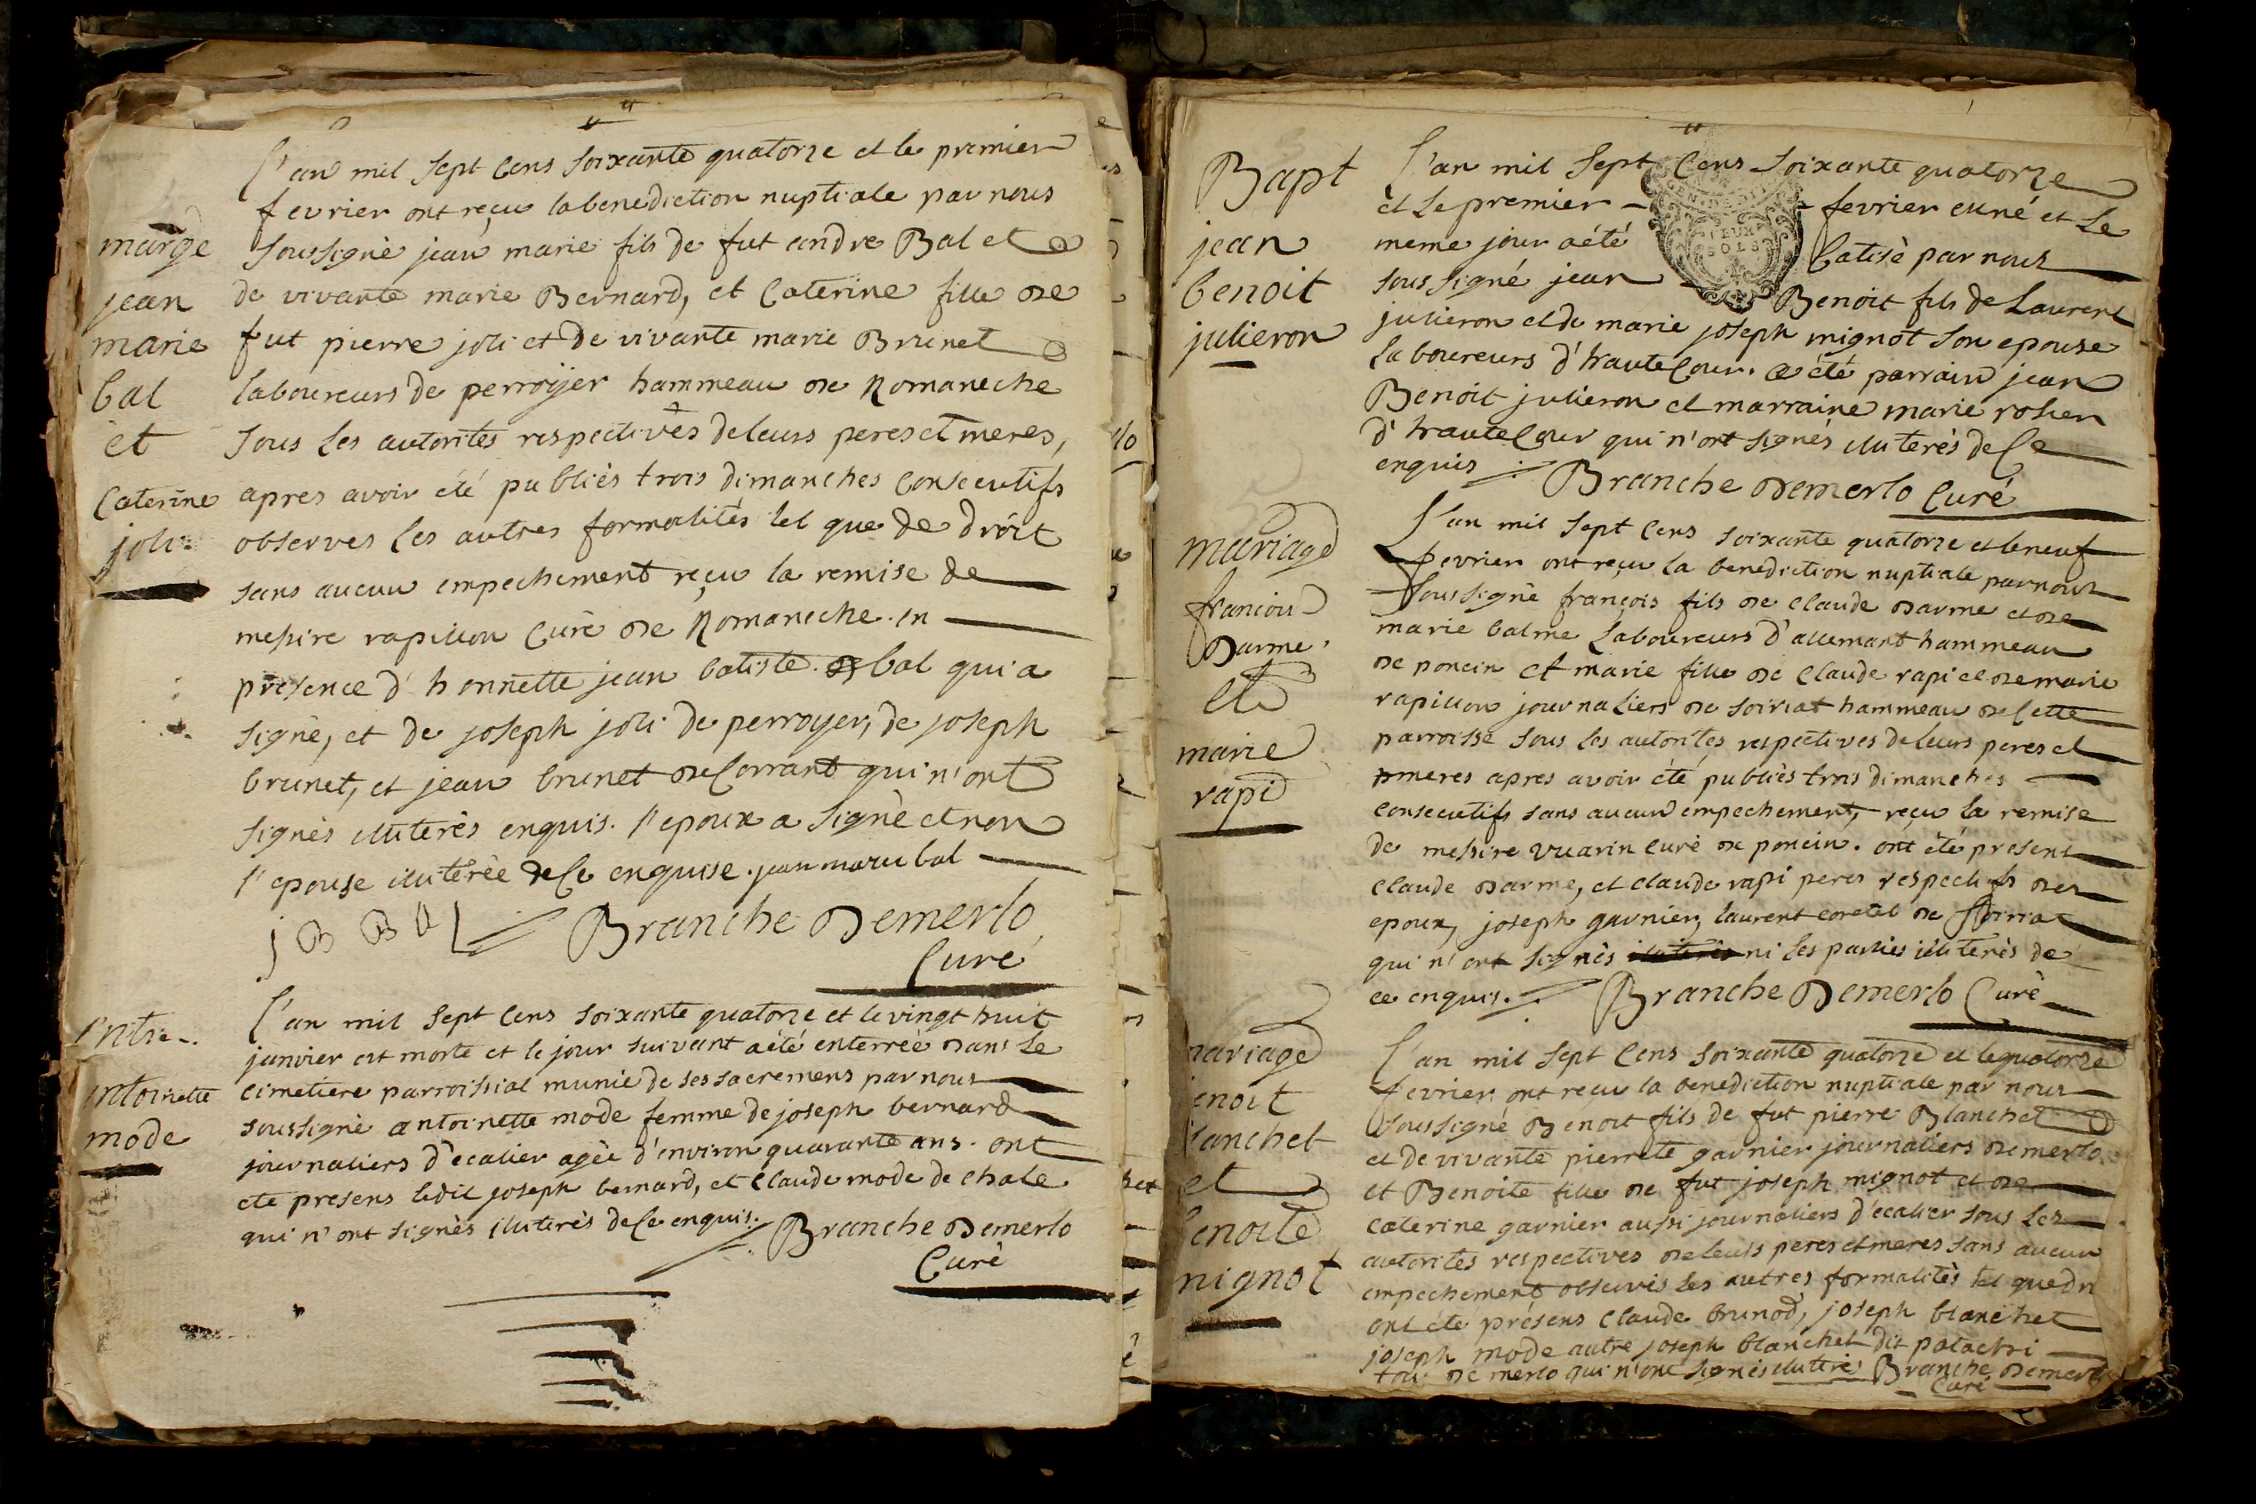 L'an mil sept cens soixante quatorze et le premier
fevrier ont reçu la benediction nuptiale par nous
soussigné jean marie fils de fut andre Bal et
de vivante marie Bernard, et Caterine fille de
fut pierre joli et de vivante marie Brunet
laboureurs de perroyer hammeau de Romaneche
sous les autorites respectives de leurs peres et meres,
apres avoir été publiés trois dimanches consecutifs
observes les autres formalités tel que de droit
sans aucun empechement reçu la remise de
messire rapillon Curé de Romaneche. en
presence d'honnette jean batiste bal qui a
signé, et de joseph joli de perroyer, de joseph
brunet, et jean brunet de Corrant qui n'ont
signés illiterés enquis. l'epoux a signé et non
l'epouse illiterée de ce enquise. jean marie bal
j B Bal Branche Demerlo
Curé
marge
jean
marie
bal
et
Caterine
joli
L'an mil sept cens soixante quatorze et le vingt huit
janvier est morte et le jour suivant a été enterrée dans le
cimetiere parroissial munie de ses sacremens par nous
soussigné antoinette mode femme de joseph bernard
journaliers d'ecalier agée d'environ quarante ans. ont
eté presens ledit joseph bernard, et Claude mode de chale
qui n'ont signés illiterés de ce enquis. Branche Demerlo
Curé
antoinette
mode
Bapt
jean
benoit
julieron
L'an mil sept cens soixante quatorze
et le premier fevrier est né et le
meme jour a été batisé par nous
soussigné jean Benoit fils de Laurent
julieron et de marie joseph mignot son epouse
laboureurs d'hautecour. a été parrain jean
Benoit julieron et marraine marie rosier
d'hautecour qui n'ont signés illiterés de ce
enquis Branche Demerlo Curé
mariage
francois
Darme
et
marie
rapi
L'an mil sept cens soixante quatorze et le neuf
fevrier ont reçu la benediction nuptiale par nous
soussigné françois fils de Claude Darme et de
marie balme Laboureurs d'allemant hammeau
de poncin et marie fille de Claude rapi et de marie
rapillon journaliers de soiriat hammeau de Cette
parroisse sous les autorites respectives de leurs peres et
meres apres avoir été publiés trois dimanches
consecutifs sans aucun empechement, reçu la remise
de messire vuarin Curé de poncin. ont été presens
Claude Darme, et Claude rapi peres respectifs des
epoux, joseph garnier, laurent coretet de soiriat
qui n'ont signés ni les parties illiterés de
ce enquis. Branche Demerlo Curé
mariage
benoit
blanchet
et
benoite
mignot
L'an mil sept cens soixante quatorze et le quatorze
fevrier ont reçu la benediction nuptiale par nous
soussigné Benoit fils de fut pierre Blanchet
et de vivante pierrete garnier journaliers demerlo
et Benoite fille de fut joseph mignot et de
caterine garnier aussi journaliers d'ecalier sous les
autorités respectives de leurs peres et meres sans aucun
empechement observés les autres formalités tel que dr
ont été présens Claude brunod, joseph blanchet
joseph mode autre joseph blanchet dit patachi
tous de merlo qui n'ont signés illiterés Branche Demerlo
Curé